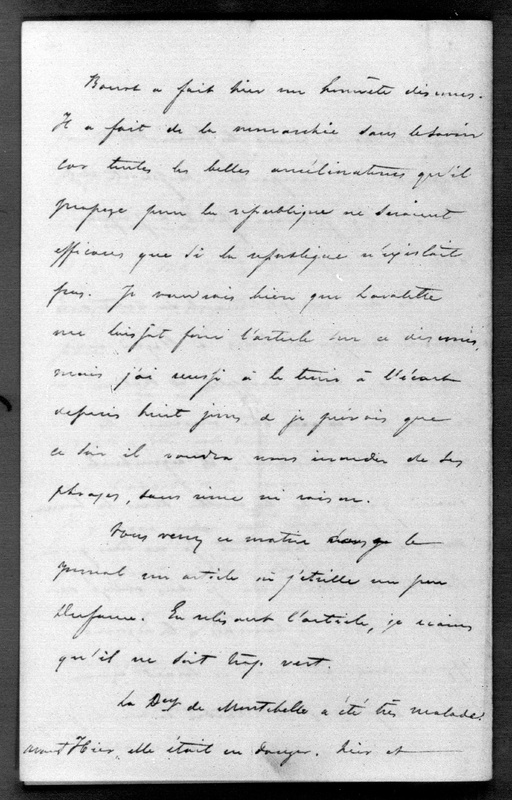 a fait hier un honnête discours.
Il a fait de la monarchie sans le savoir
car toutes les belles améliorations qu'il
propose pour la république ne seraient
efficaces que si la république n'existait
pas. Je voudrais bien que Lavalette
me laissât faire l'article sur ce discours,
mais j'ai réussi à le tenir à l'écart
depuis huit jours & je prévois que
ce soir il voudra nous inonder de ses
phrases, sans rime ni raison.
Vous verrez ce matin dans le
journal un article où j'étrille un peu
Dufaure. En relisant l'article, je crains
qu'il ne soit trop vert.
La Dsse de Montebello a été très malade.
Hier, elle était en danger. hier et